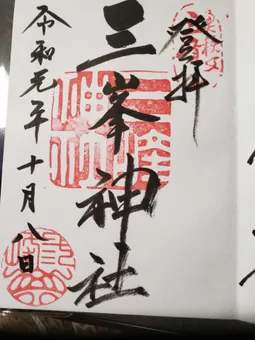 登拝
三峯神社
令和元年十月八日